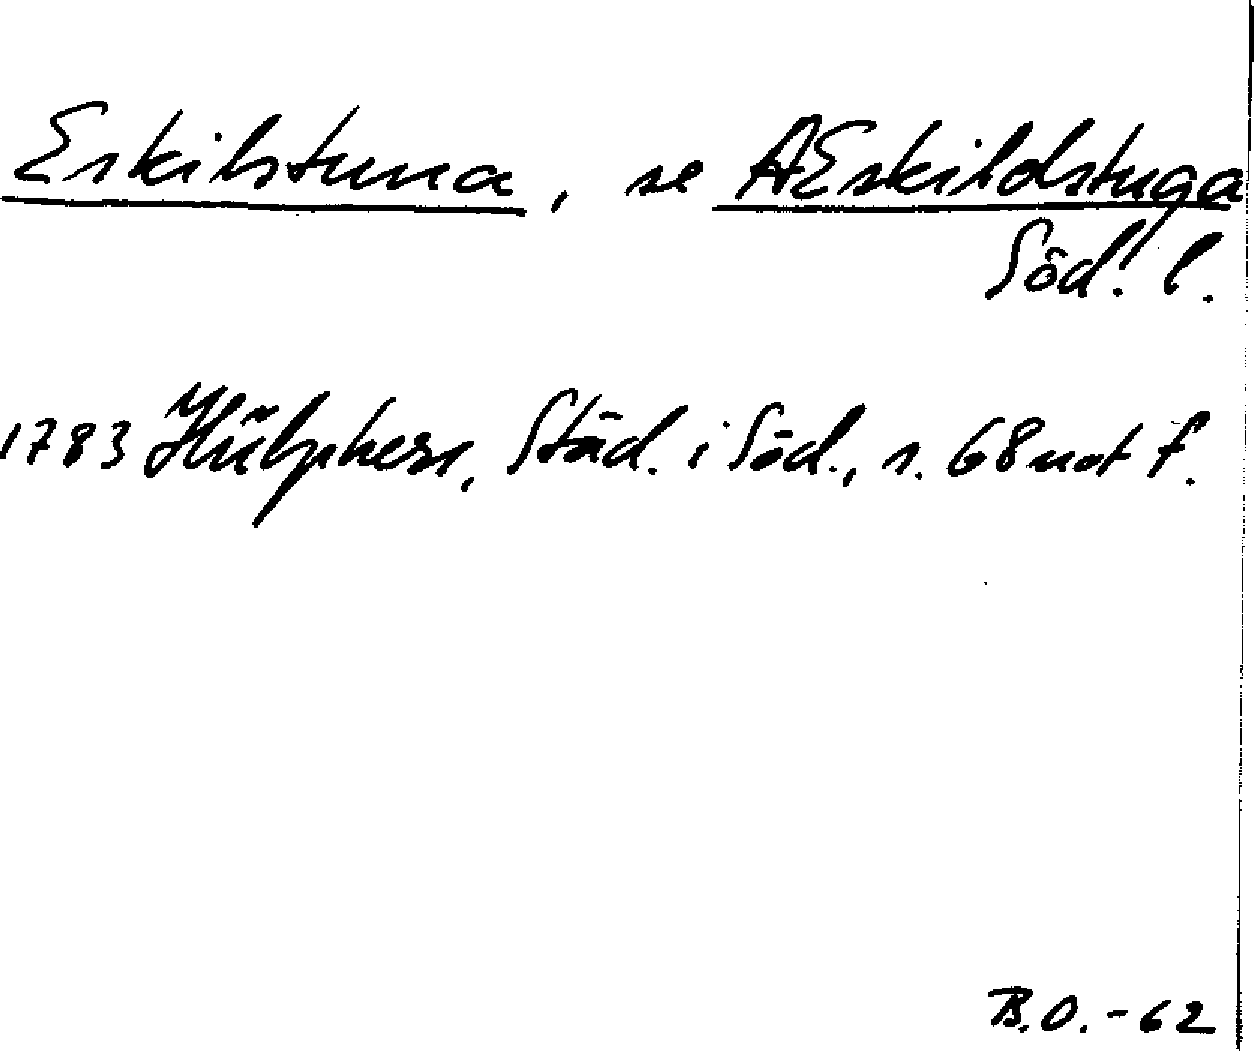 Eskilstuna, se AEskildstuga
Söd. l.
1783 Hülphers, Städ. i Söd., s. 68 not f.
B.O. - 62